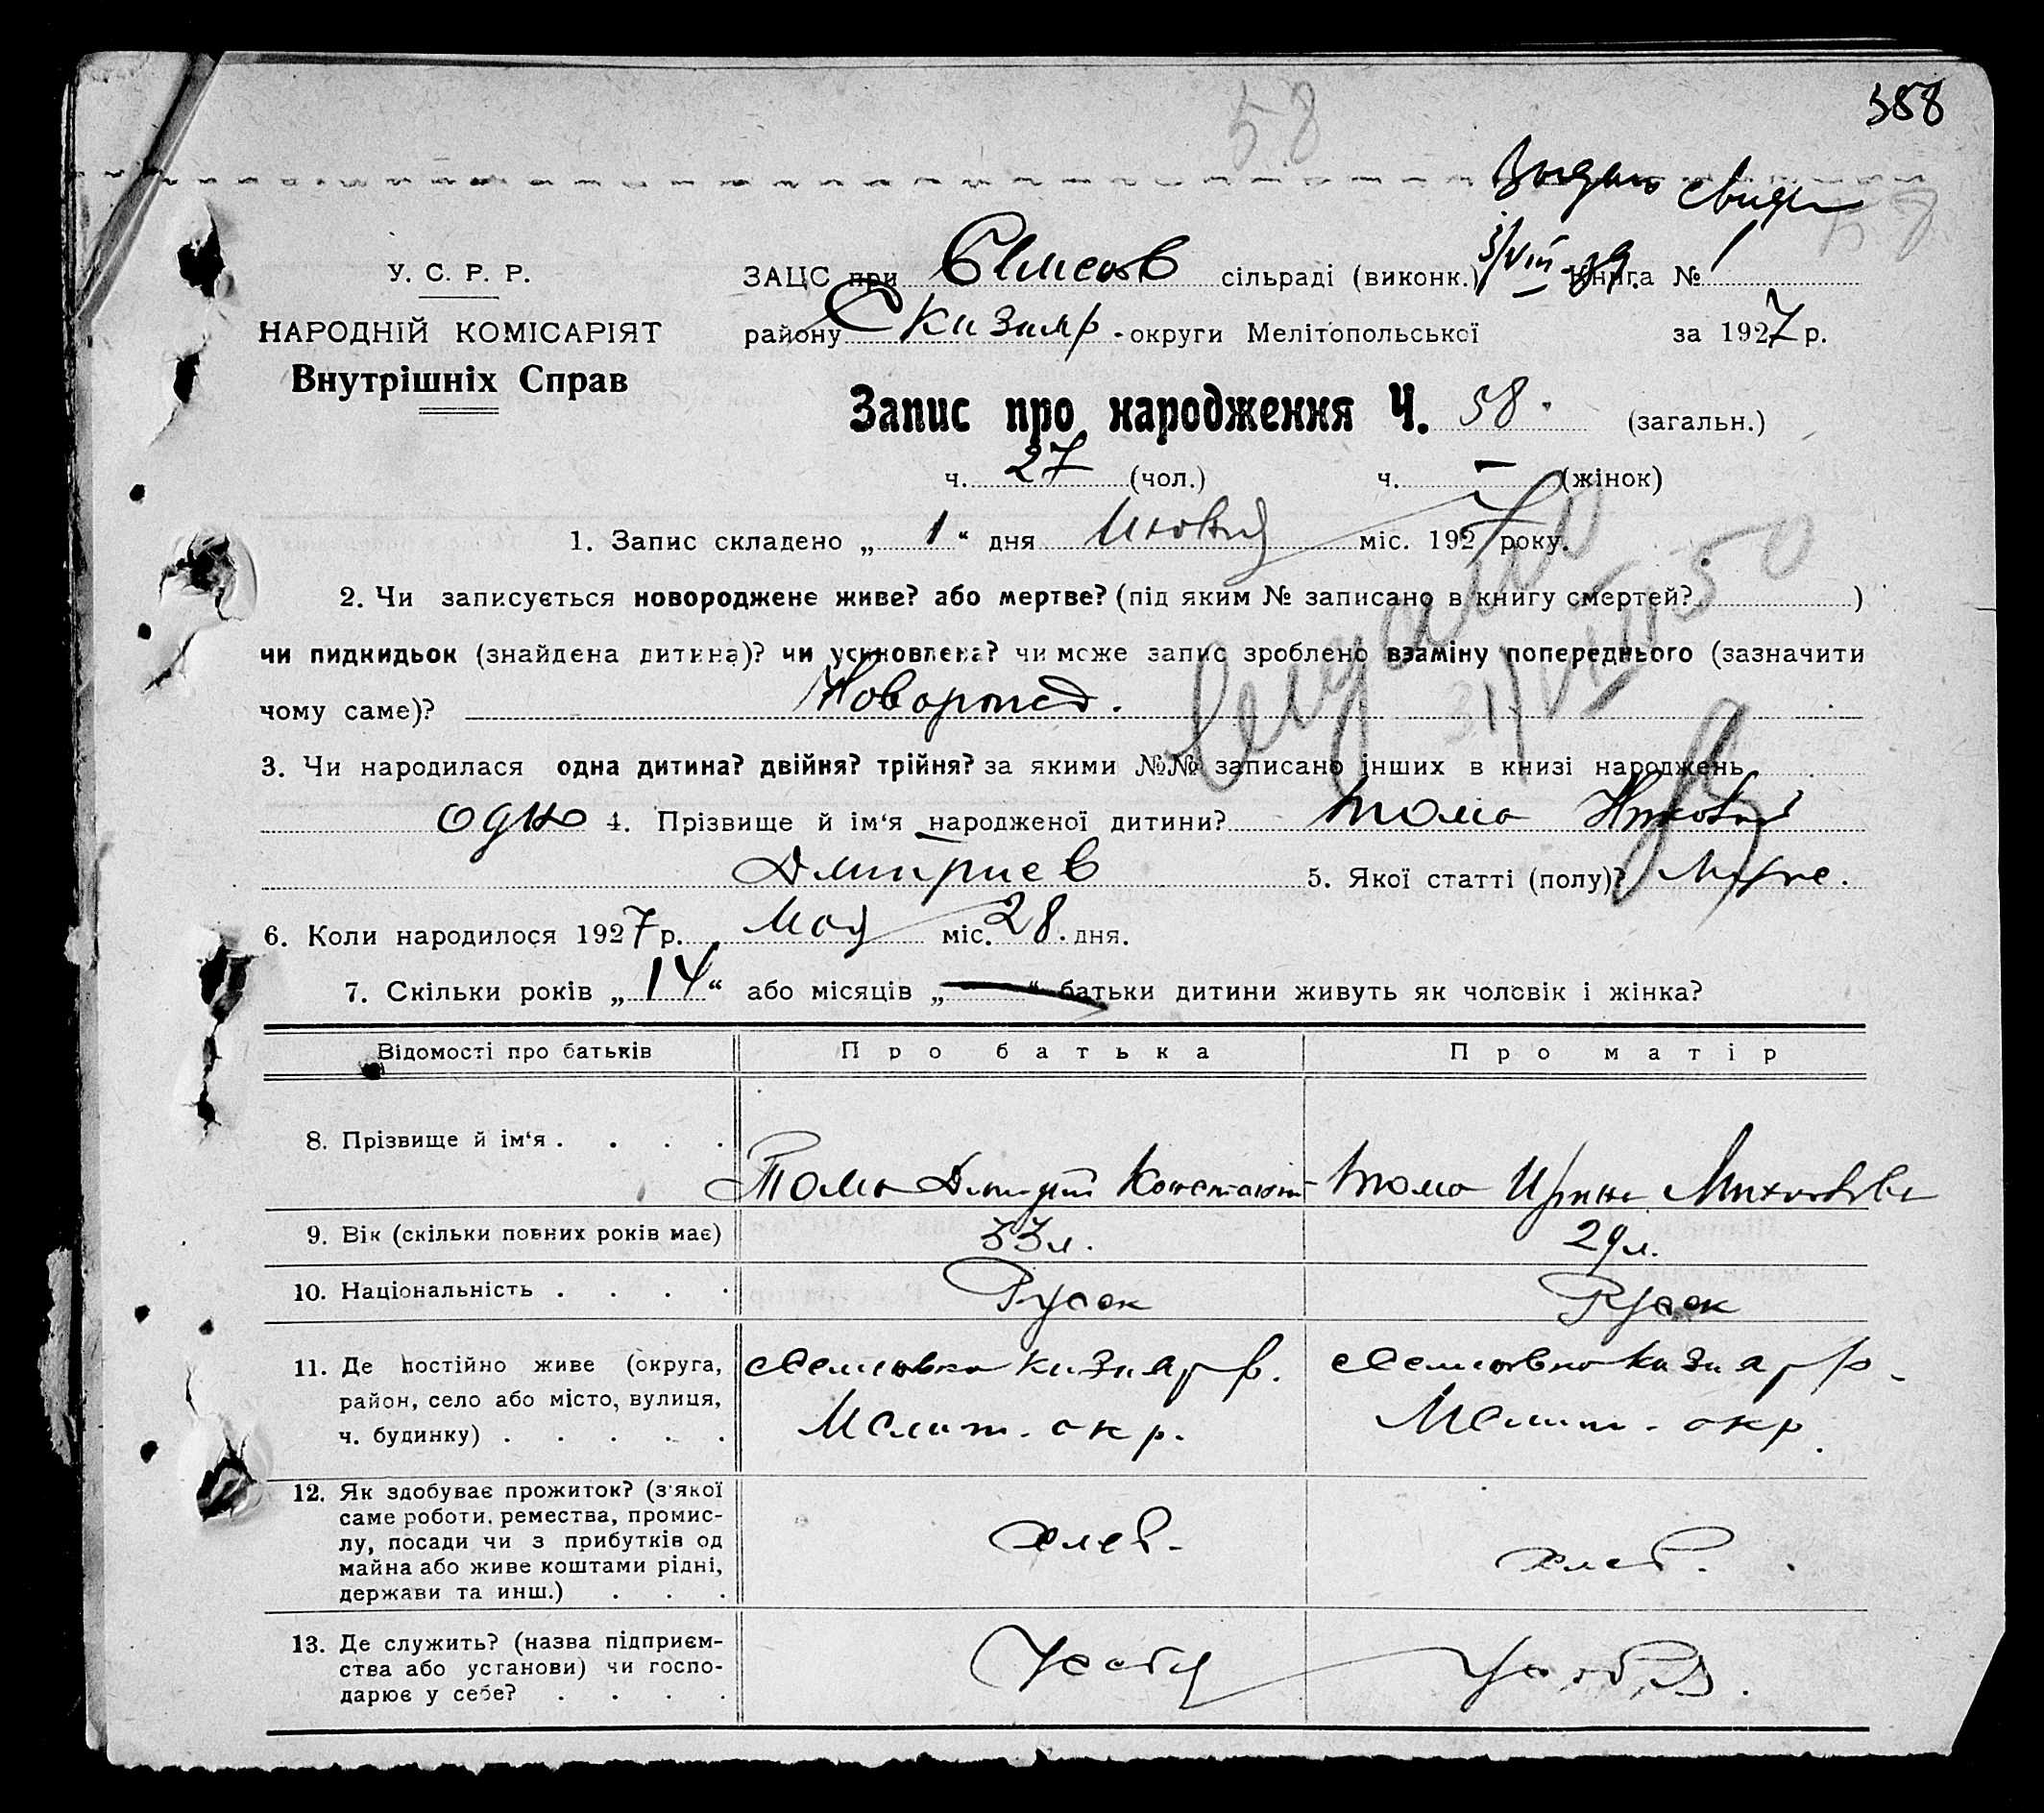 358
58
Выдано свид
58
У. С. Р. Р.
НАРОДНІЙ КОМІСАРІЯТ
Внутрішніх Справ
ЗАЦС при сільраді (виконк.) Книга № 1
району округи Мелітопольської за 1927 р.
Запис про народження Ч. 58. (загальн.)
ч. 27 (чол.) ч. – (жінок)
1. Запис складено „ 1 “ дня міс. 1927 року.
2. Чи записується новороджене живе? або мертве? (під яким № записано в книгу смертей? )
чи пидкидьок (знайдена дитина)? чи усиновлена? чи може запис зроблено взаміну попереднього (зазначити
чому саме)? Каворожд.
31/VIII 50
3. Чи народилася одна дитина? двійня? трійня? за якими №№ записано інших в книзі народжень
одно 4. Прізвище й ім‘я народженої дитини? Тома
Дмитриев 5. Якої статті (полу)? Муже.
6. Коли народилося 1927 р. Мая міс. 28. дня.
7. Скільки років „ 14 “ або місяців „ — “ батьки дитини живуть як чоловік і жінка?
Відомості про батьків Про батька Про матір
8. Прізвище й ім‘я . . . .
Тома Дмитрий Константин Тома Ирина
9. Вік (скільки повних років має) 33 л. 29 л.
10. Національність . . . . Русск Русск
11. Де постійно живе (округа,
район, село або місто, вулиця,
ч. будинку) . . . . .
Мелит. окр. Мелит. окр.
12. Як здобуває прожиток? (з‘якої
саме роботи, ремества, промис-
лу, посади чи з прибутків од
майна або живе коштами рідні,
держави та инш.) . . .
хлеб. хлеб.
13. Де служить? (назва підприєм-
ства або установи) чи госпо-
дарює у себе? . . . .
У себя У себя.